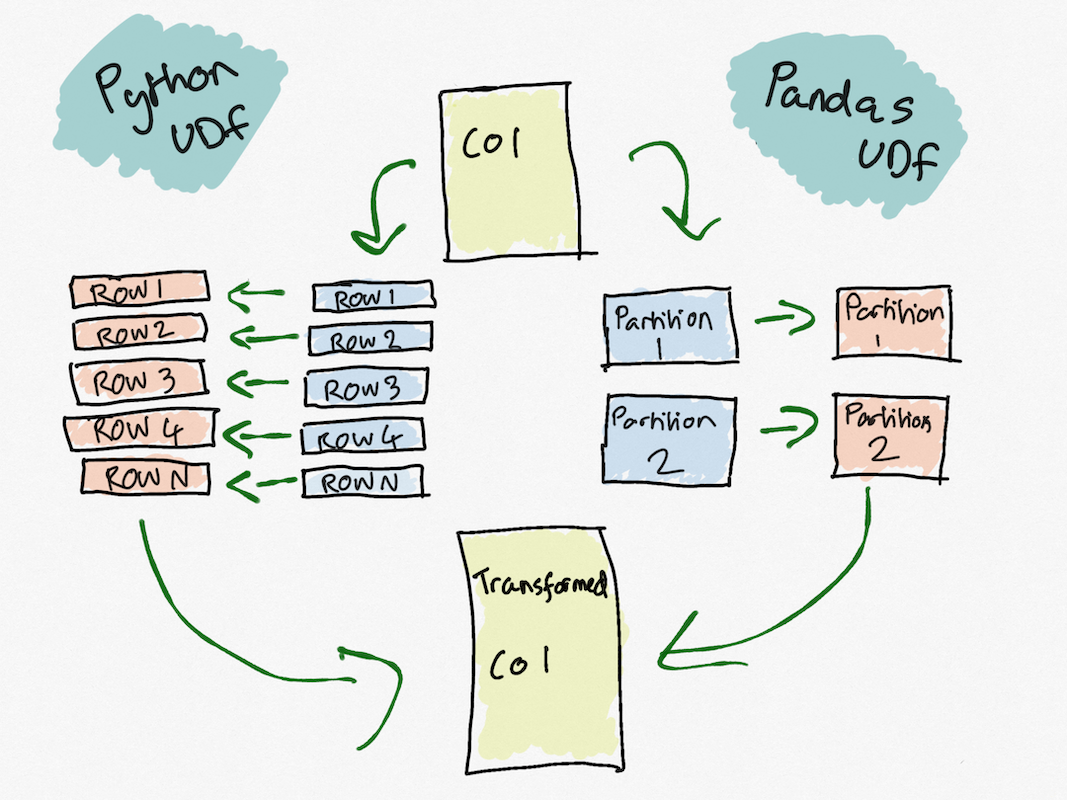 Python
UDF
Col
Pandas
UDF
ROW 1
ROW 2
ROW 3
ROW 4
ROW N
ROW 1
ROW 2
ROW 3
ROW 4
ROW N
Partition
1
Partition
2
Partition
1
Partition
2
Transformed
Col